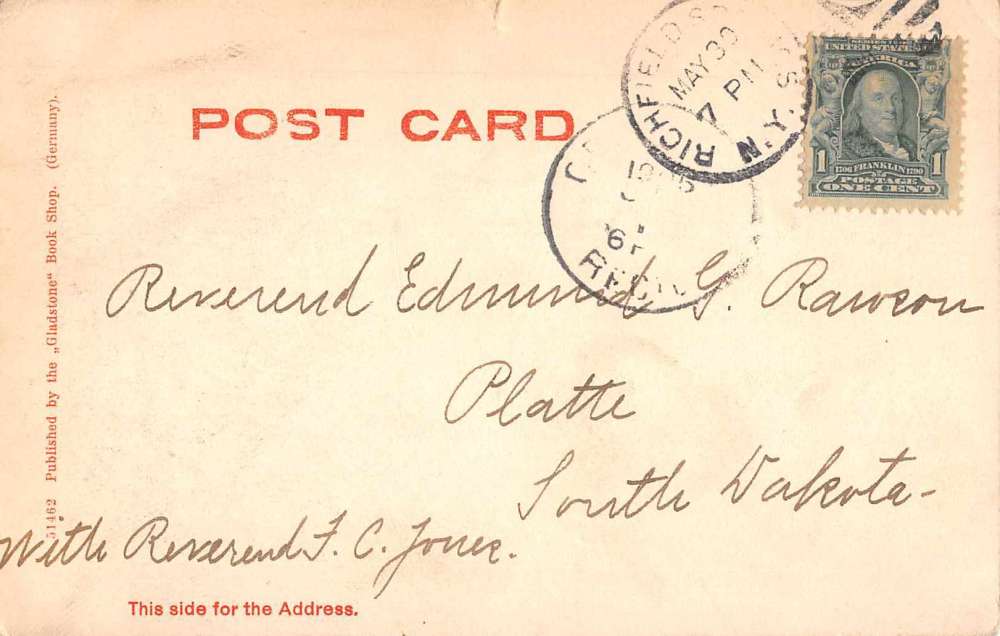 POST CARD
RICHFIELD N.Y.
MAY 30
7 PM
REC'D
SERIES 1902
UNITED STATES OF AMERICA
1706 FRANKLIN 1790
1 1
POSTAGE
ONE CENT
Reverend Edmund G. Rawson
Platte
South Dakota-
With Reverend F. C. Jones.
This side for the Address.
51462 Published by the „Gladstone“ Book Shop. (Germany).